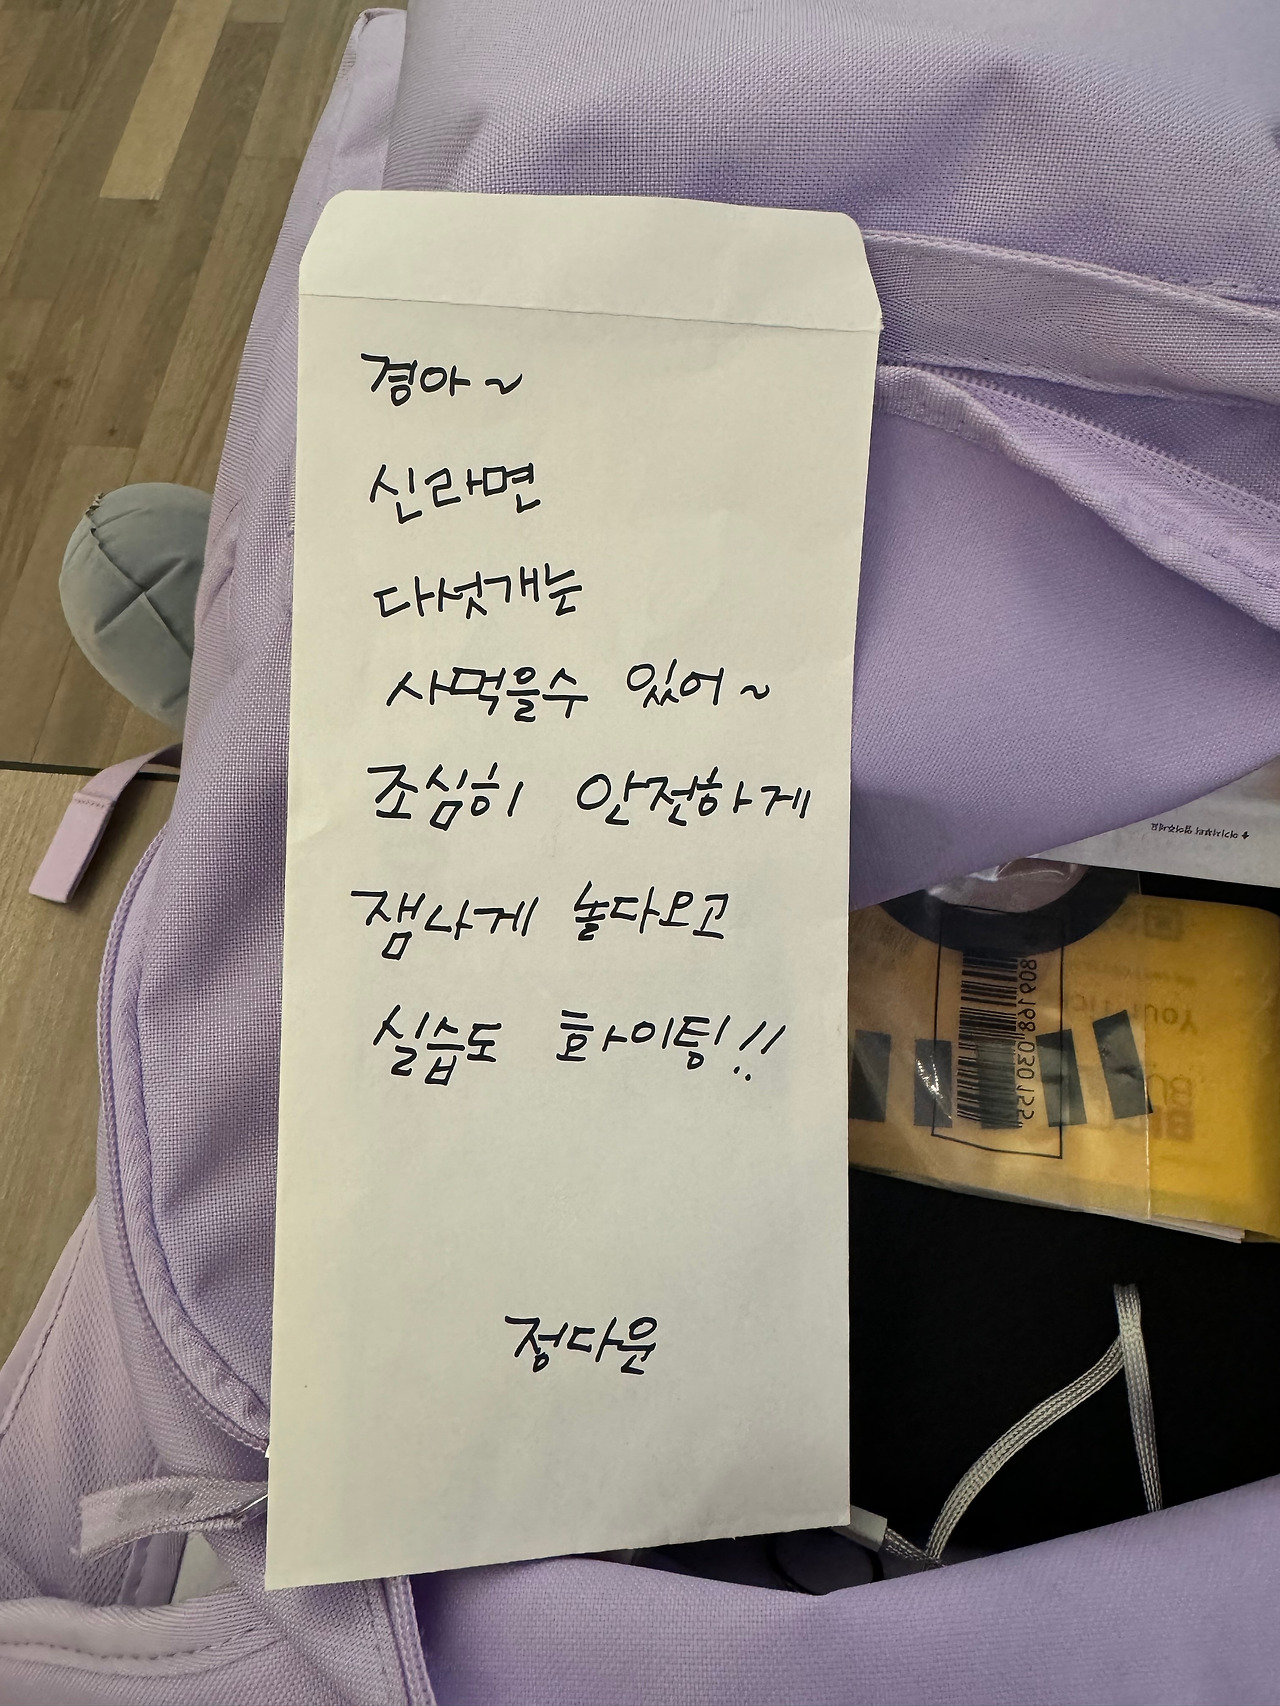 경아~
신라면
다섯개는
사먹을수 있어~
조심히 안전하게
잼나게 놀다오고
실습도 화이팅!!
정다운
809168 030155